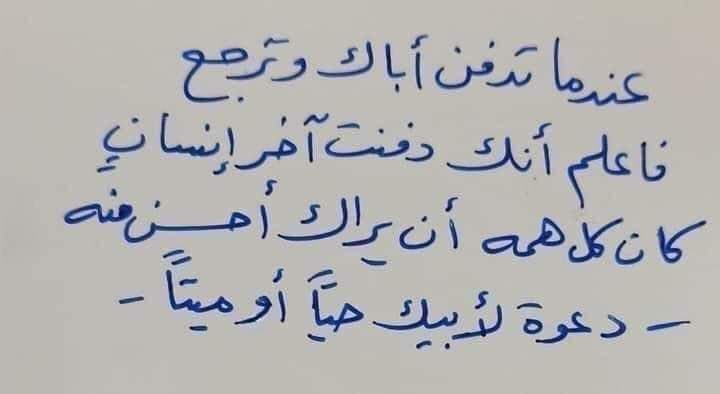 عندما تدفن أباك وترجع
فاعلم أنك دفنت آخر إنسانٍ
كان كل همه أن يراك أحسن منه
- دعوة لأبيك حيًّا أو ميتًا -